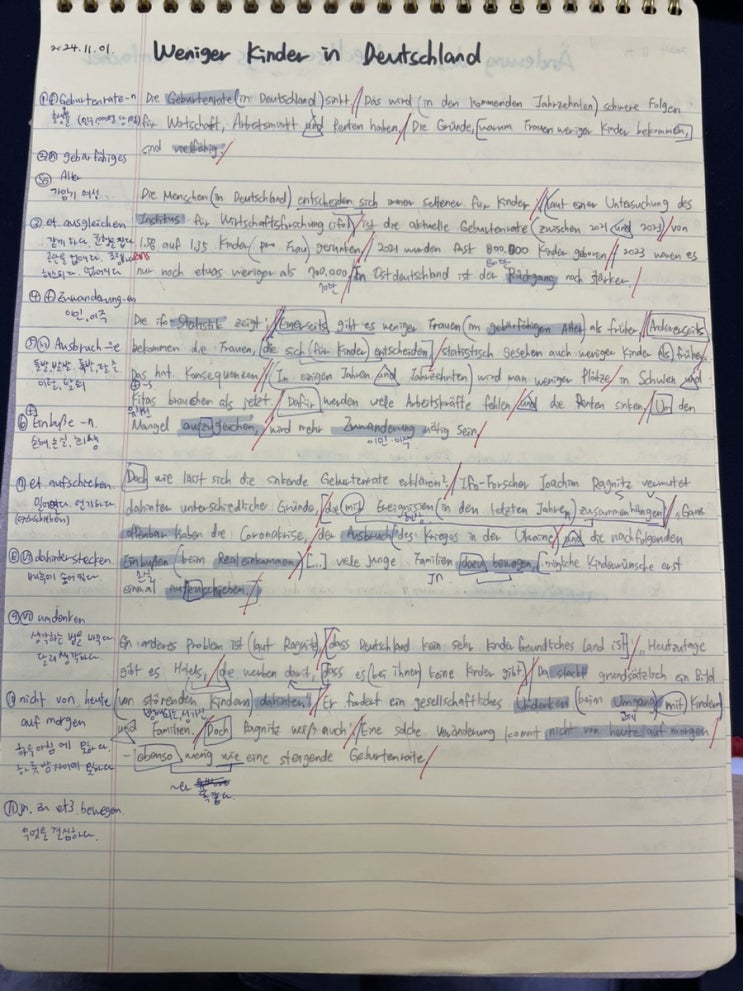 2024.11.01.
Weniger Kinder in Deutschland
① ⓕ Geburtenrate -n
출생률
② gebärfähiges
Alter
가임기 여성
③ et. ausgleichen
④ ⓕ Zuwanderung -en
이민, 이주
⑤ ⓜ Ausbruch -üe
⑥ Einbuße -n.
⑦ et. aufschieben.
⑧ dahinterstecken
⑨ umdenken
생각하는 법을 바꾸다
달리 생각하다.
⑩ nicht von heute
auf morgen
하루아침에 못하다.
하룻밤 사이에 못하다
⑪ jn. zu et3. bewegen
무엇을 결심하다.
Die Geburtenrate (in Deutschland) sinkt. // Das wird (in den kommenden Jahrzehnten) schwere Folgen
für Wirtschaft, Arbeitsmarkt und Renten haben. / Die Gründe, [warum Frauen weniger Kinder bekommen,]
sind vielfältig. /
Die Menschen (in Deutschland) entscheiden sich immer seltener für Kinder. / Laut einer Untersuchung des
Institus für Wirtschaftsforschung (ifo) / ist die aktuelle Geburtenrate (zwischen 2021 und 2023) / von
1,58 auf 1,35 Kinder (pro Frau) gesunken. / 2021 wurden fast 800.000 Kinder geboren, / 2023 waren es
nur noch etwas weniger als 700.000. / In Ostdeutschland ist der Rückgang noch stärker. /
Die ifo-Statistik zeigt: / Einerseits gibt es weniger Frauen (im gebärfähigen Alter) als früher. / Andererseits
bekommen die Frauen, [die sich (für Kinder) entscheiden,] / statistisch gesehen auch weniger Kinder als früher.
Das hat Konsequenzen: / In einigen Jahren und Jahrzehnten) wird man weniger Plätze / in Schulen und
Kitas brauchen als jetzt. / Dafür werden viele Arbeitskräfte fehlen / und die Renten sinken. / Um den
Mangel auszugleichen, / wird mehr Zuwanderung nötig sein. /
이민·이주
Doch wie lässt sich die sinkende Geburtenrate erklären? / Ifo-Forscher Joachim Ragnitz vermutet
dahinter unterschiedliche Gründe, [die mit Ereignissen (in den letzten Jahren) zusammenhängen]: / „Ganz
offenbar haben die Coronakrise, / der Ausbruch / des Krieges in der Ukraine / und die nachfolgenden
Einbußen (beim Realeinkommen) / [...] viele junge Familien dazu bewogen, [mögliche Kinderwünsche erst
einmal aufzuschieben.]
Ein anderes Problem ist (laut Ragnitz), / [dass Deutschland kein sehr kinderfreundliches Land ist]: / „Heutzutage
gibt es Hotels, / die werben damit, / dass es (bei ihnen) keine Kinder gibt. / Da steckt grundsätzlich ein Bild
(von störenden Kindern) dahinter." / Er fordert ein gesellschaftliches Umdenken (beim Umgang) mit Kindern
und Familien. / Doch Ragnitz weiß auch: / Eine solche Veränderung kommt nicht von heute auf morgen
– ebenso wenig wie eine steigende Geburtenrate /